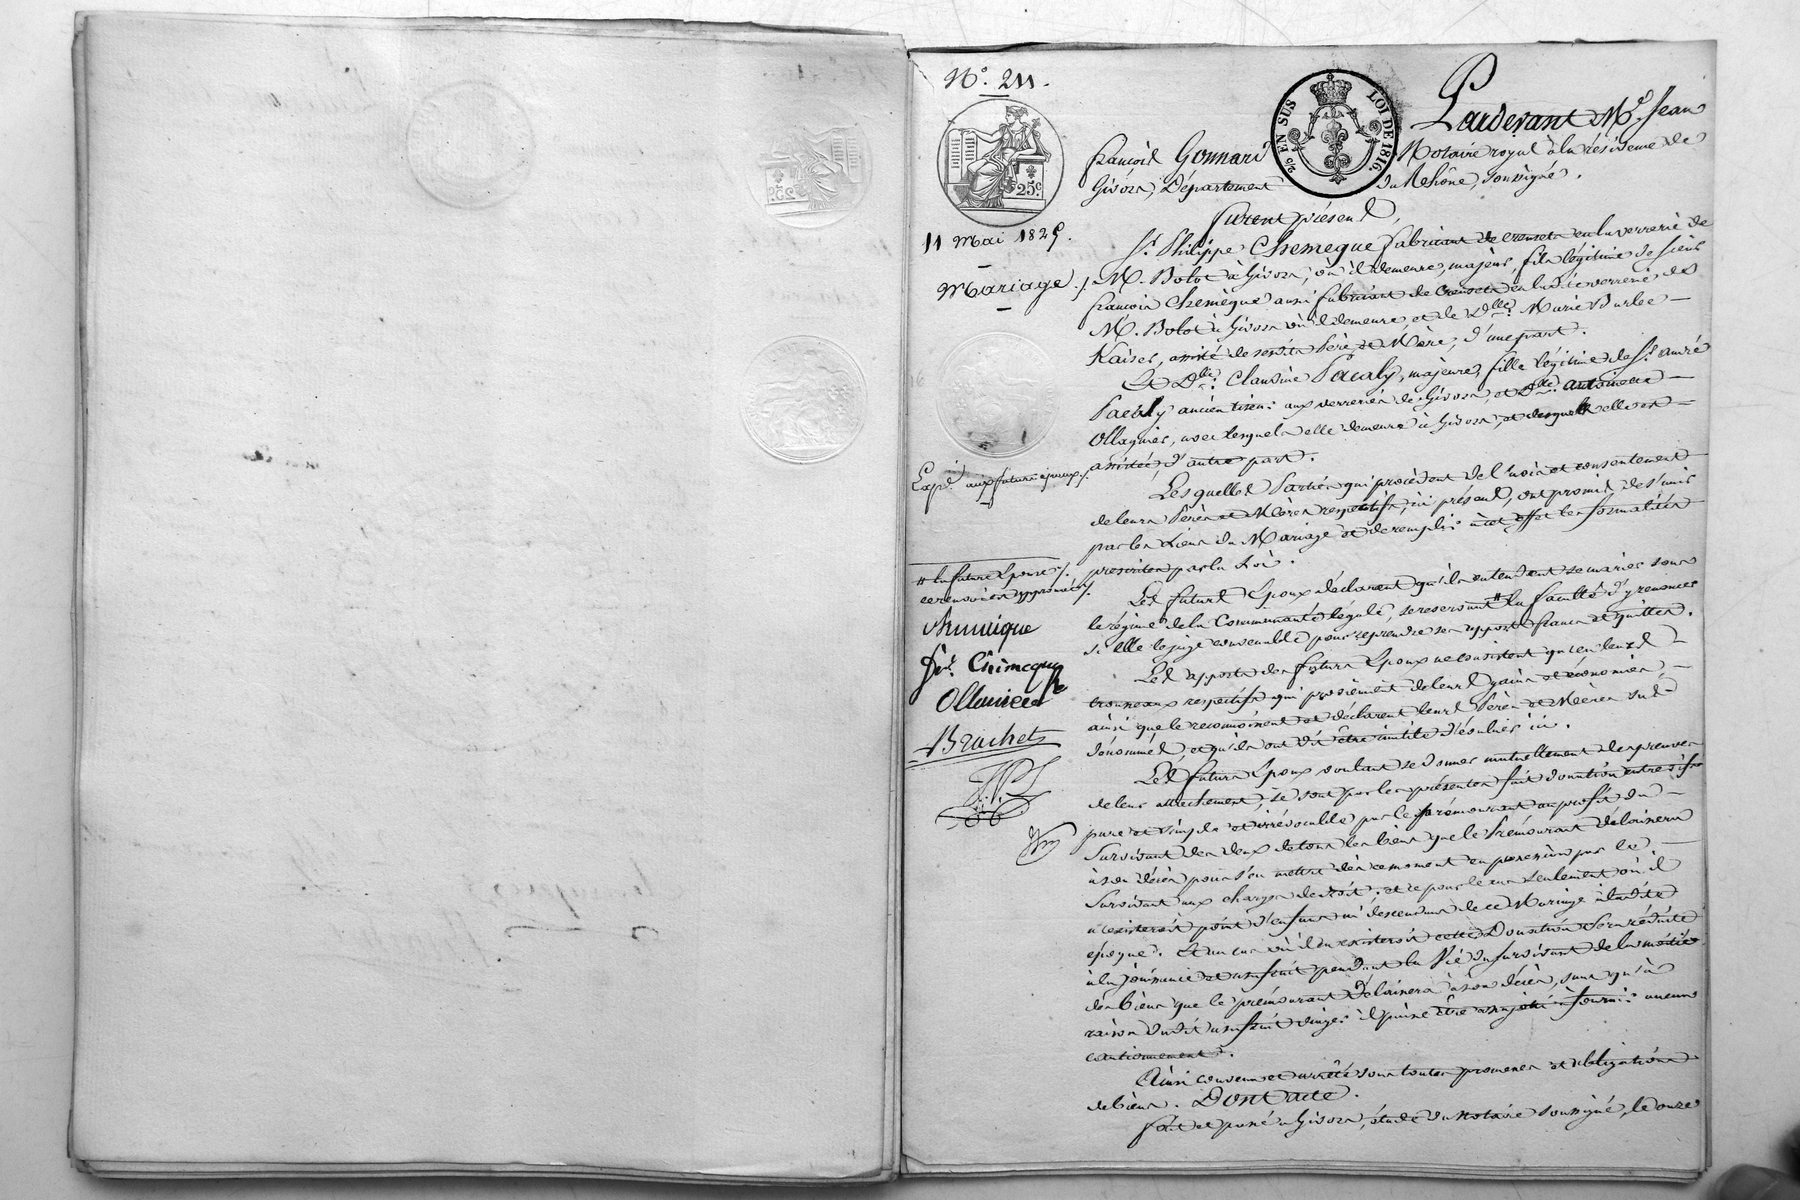 N.º 211.
2/10 EN SUS
LOI DE 1816.
25.c
Pardevant M.e Jean
françois Gonnard Notaire royal à la résidence de
Givors, Département du Rhône, soussigné.
11 Mai 1825.
Mariage./
furent présens,
S.r Philippe Chemeque fabricant de creusets en la verrerie de
M. Bolot à Givors, où il demeure, majeur, fils légitime de sieur
françois Chemèque aussi fabricant de Creusets en ladite verrerie de
M. Bolot à Givors où il demeure et de D.lle Marie Barbe
Kaiser, assisté de sesdits Père et Mère, d'une part.
Et D.lle Claudine Pacaly, majeure, fille légitime de S.r andré
Pacaly ancien tiseur aux verreries de Givors, et D.lle antoinette
Ollagnier, avec lesquels elle demeure à Givors, et desquels elle est
assistée, d'autre part.
Exp.é aux futurs époux./.
Lesquelles Parties qui procèdent de l'avis et consentement
de leurs Pères et Mères respectifs, ici présens, ont promis de s'unir
par les Liens du Mariage et de remplir à cet effet les formalités
prescrites par la Loi.
# la future Epouse./.
ce renvoi est approuvé./.
Les futurs Epoux déclarent qu'ils entendent se marier sous
le régime de la Communauté légale, se reservant # la faculté d'y renoncer
si elle le juge convenable pour reprendre ses apports francs et quittes.
chemeique
f.is Chimeque
Ollanier
Brachet
Les apports des futurs Epoux ne consistent qu'en leurs
trousseaux respectifs qui proviennent de leurs gains et économies
ainsi que le reconnoissent et déclarent leurs Pères et Mères sus
dénommés et qu'ils ont dit être inutile d'évaluer ici.
Les futurs Epoux voulant se donner mutuellement des preuves
de leur attachement, se sont par les présentes fait donation entre vifs
pure et simple et irrévocable par le prémourant au profit du
Survivant des deux de tous les biens que le Prémourant délaissera
à son décès pour s'en mettre dès ce moment en possession par le
Survivant aux charges de droit; et ce pour le cas seulement où il
n'existeroit point d'enfans ni descendans de ce Mariage à ladite
époque. Et au cas où il en existeroit cette Donation sera réduite
à la jouissance et usufruit pendant la Vie du survivant de la moitié
des biens que le prémourant délaissera à son décès, sans qu'à
raison dudit usufruit viager il puisse être assujetti à fournir aucun
cautionnement.
Ainsi convenu et arrêté sous toutes promesses et obligations
de biens. Dont acte.
fait et passé à Givors, étude du notaire soussigné, le onze